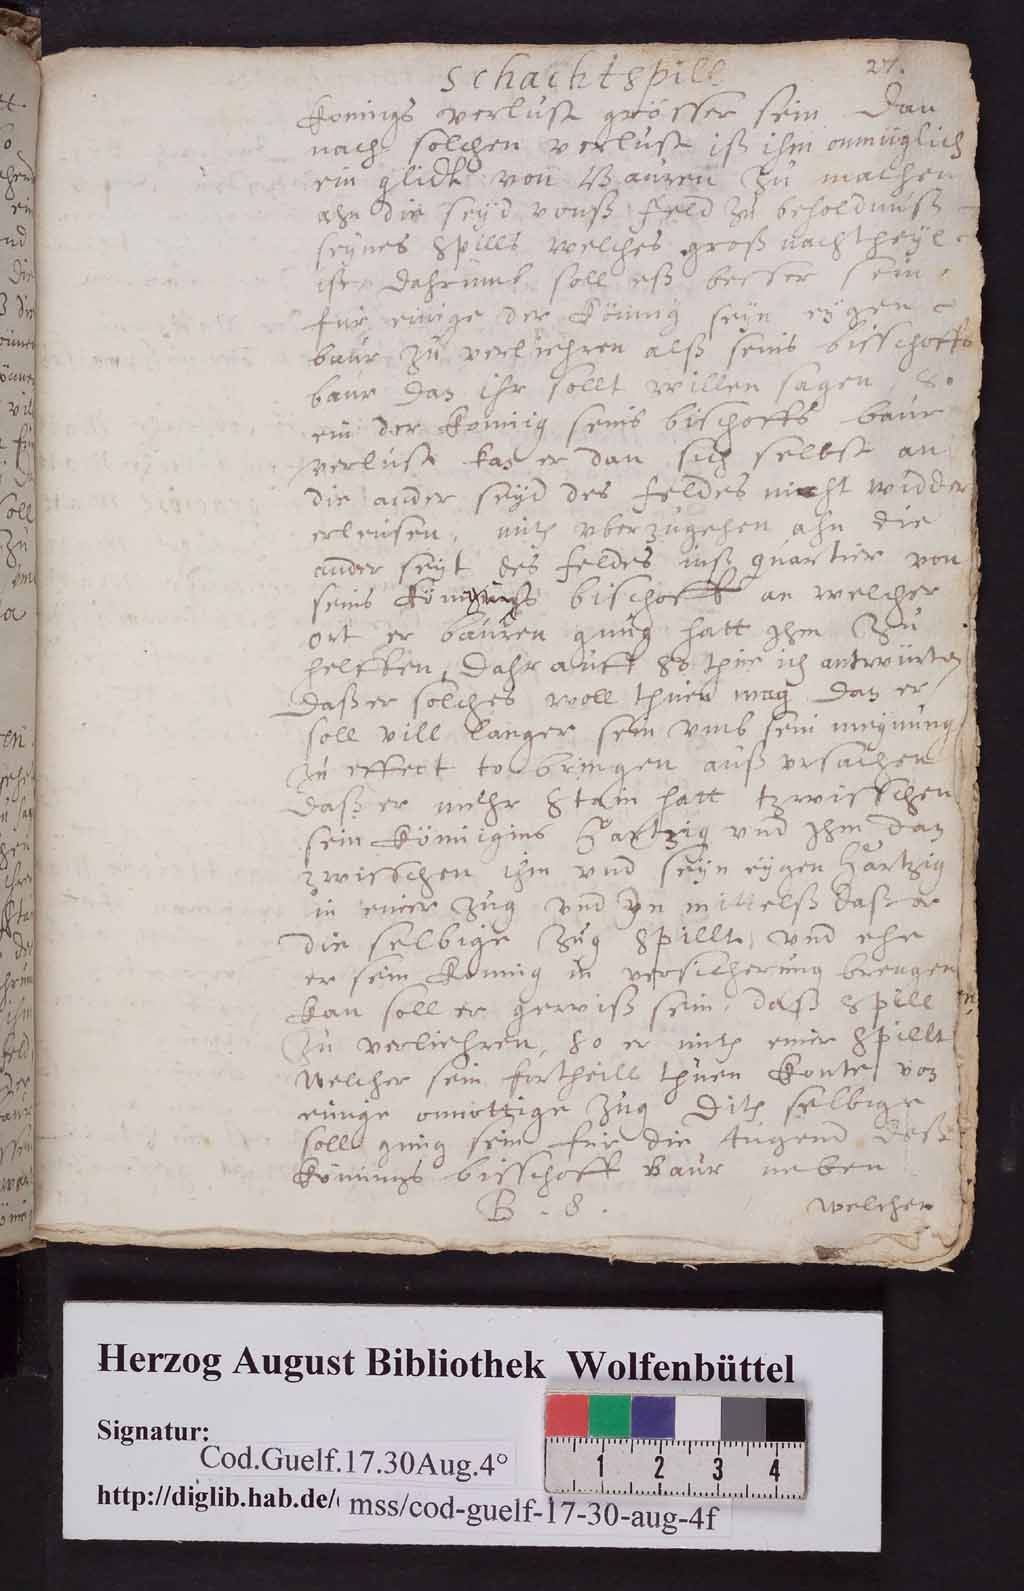 Schachtspill
27.
Konings verlust grösser sein Dan
nach solchen verlust iß ihm onmüglich
ein glidt von Bauren zu machen
ahn die seÿd vonß feld zu beholdnüß
seÿnes Spills welches groß nachtheÿl
ist, dahrumb soll eß besser sein
fur einige der Könnig seÿn eÿgen
baur zu verliehren alß seins bisschoffs
baur Dan ihr sollt willen sagen, So
ein der Konnig seins bischoffs baur
verlust kan er dan sich selbst an
die ander seÿd des feldes nicht widder
erleusen, mitz uberzugehen ahn die
ander seÿt des feldes inß quartier von
seins bischoff an welcher
ort er bauren gnug hatt Ihm zu
helffen, Dahrauff So thue ich antwürten
Daß er solches woll thuen mag Dan er
soll vill langer sein umb sein meÿnung
zu effect to bringen auß ursachen
Daß er mehr Stain hatt tzwisschen
sein Könnigins Hartzig und Ihm dan
zwisschen ihm und seÿn eÿgen Hartzig
in einer zug und ÿn mittelß daß er
die selbige zug Spillt, und ehe
er sein Konnig in versicherung brengen
kan soll er gerwiß sein, daß Spill
zu verliehren, So er mitz einer Spillt
welcher sein fortheill thuen konte von
einige onnottige zug Ditz selbige
soll gnug sein fur die tugend deß
Könnings bisschoff Baur neben
B. 8.
welcher
Herzog August Bibliothek Wolfenbüttel
Signatur:
Cod.Guelf.17.30Aug.4°
http://diglib.hab.de/
mss/cod-guelf-17-30-aug-4f
1 2 3 4